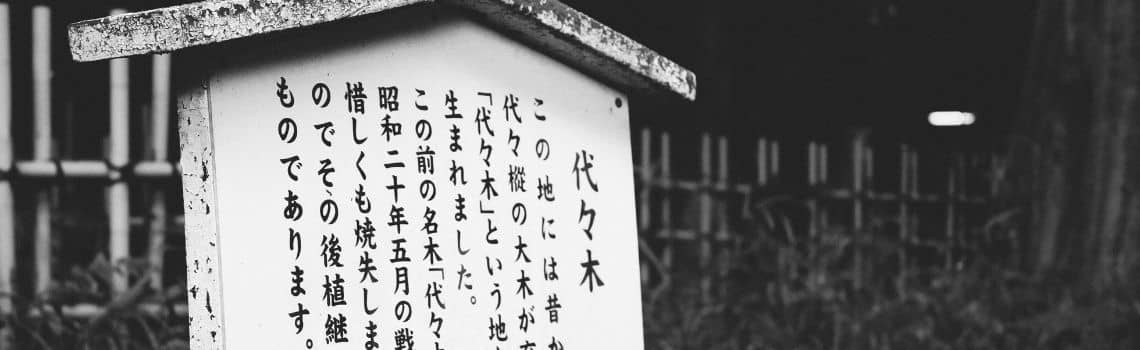 代々木
この地には昔か
代々樅の大木が
「代々木」という地
生まれました。
この前の名木「代々
昭和二十年五月の戦
惜しくも焼失しま
のでその後植継
ものであります。